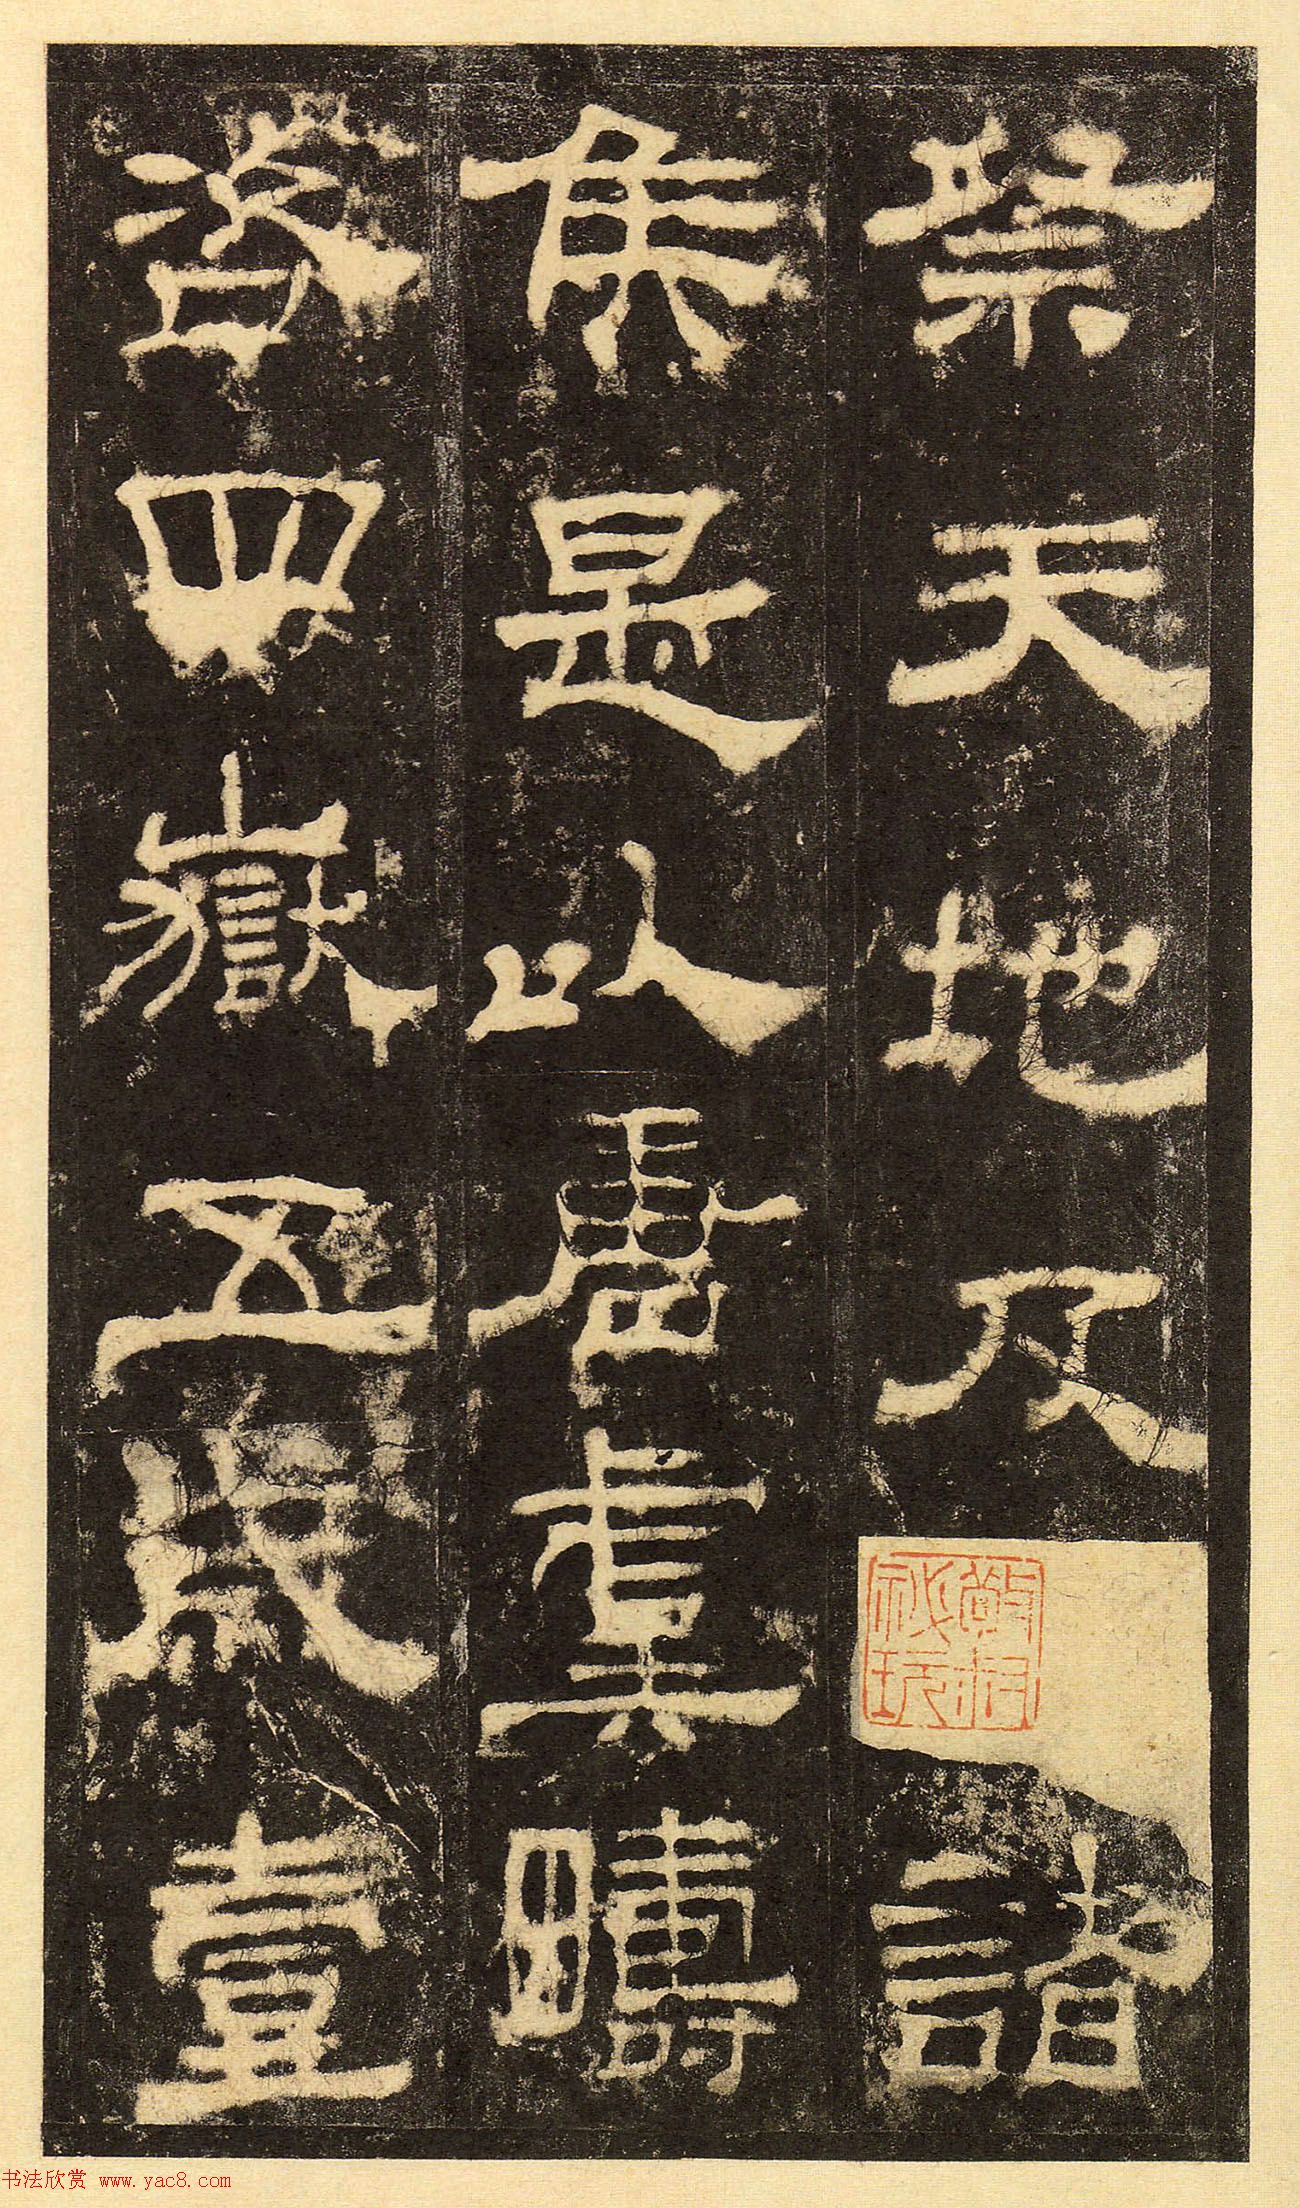 祭天地及諸
侯是以唐虞疇
咨四嶽五歲壹
書法欣赏 www.yac8.com